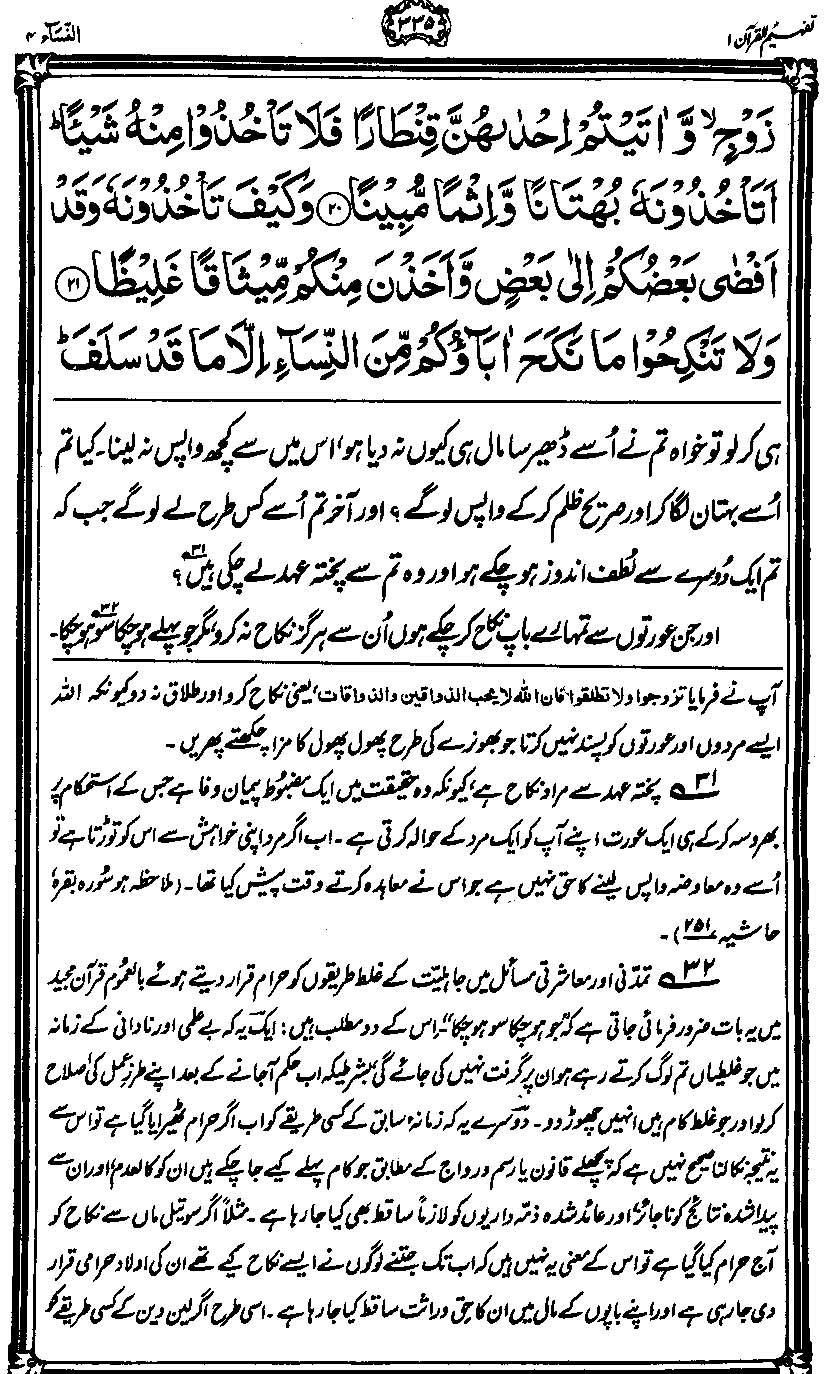 تفہیم القرآن ۱
۳۳۵
النّسآء ۴
زَوْجٍ ۙ وَّاٰتَيْتُمْ اِحْدٰىهُنَّ قِنْطَارًا فَلَا تَاْخُذُوْا مِنْهُ شَيْـًٔا ؕ
اَتَاْخُذُوْنَهٗ بُهْتَانًا وَّاِثْمًا مُّبِيْنًا ۲۰ وَكَيْفَ تَاْخُذُوْنَهٗ وَقَدْ
اَفْضٰى بَعْضُكُمْ اِلٰى بَعْضٍ وَّاَخَذْنَ مِنْكُمْ مِّيْثَاقًا غَلِيْظًا ۲۱
وَلَا تَنْكِحُوْا مَا نَكَحَ اٰبَآؤُكُمْ مِّنَ النِّسَآءِ اِلَّا مَا قَدْ سَلَفَ ؕ
ہی کر لو تو خواہ تم نے اُسے ڈھیر سا مال ہی کیوں نہ دیا ہو، اس میں سے کچھ واپس نہ لینا۔ کیا تم
اُسے بہتان لگا کر اور صریح ظلم کر کے واپس لو گے؟ اور آخر تم اُسے کس طرح لے لو گے جب کہ
تم ایک دُوسرے سے لُطف اندوز ہو چکے ہو اور وہ تم سے پختہ عہد لے چکی ہیں۳۱؟
اور جن عورتوں سے تمہارے باپ نکاح کر چکے ہوں اُن سے ہرگز نکاح نہ کرو، مگر جو پہلے ہو چکا سو ہو چکا۳۲۔
آپ نے فرمایا تزوجوا ولا تطلقوا فان الله لا يحب الذواقين والذواقات، یعنی نکاح کرو اور طلاق نہ دو کیونکہ اللہ
ایسے مردوں اور عورتوں کو پسند نہیں کرتا جو بھونرے کی طرح پھول پھول کا مزا چکھتے پھریں۔
۳۱؎ پختہ عہد سے مراد نکاح ہے، کیونکہ وہ حقیقت میں ایک مضبُوط پیمانِ وفا ہے جس کے استحکام پر
بھروسہ کر کے ہی ایک عورت اپنے آپ کو ایک مرد کے حوالہ کرتی ہے۔ اب اگر مرد اپنی خواہش سے اس کو توڑتا ہے تو
اُسے وہ معاوضہ واپس لینے کا حق نہیں ہے جو اس نے معاہدہ کرتے وقت پیش کیا تھا۔ (ملاحظہ ہو سُورہ بقرہ،
حاشیہ ۲۵۱)۔
۳۲؎ تمدّنی اور معاشرتی مسائل میں جاہلیّت کے غلط طریقوں کو حرام قرار دیتے ہوئے بالعمُوم قرآن مجید
میں یہ بات ضرور فرمائی جاتی ہے کہ ”جو ہو چکا سو ہو چکا“۔ اس کے دو مطلب ہیں: ایک یہ کہ بے علمی اور نادانی کے زمانہ
میں جو غلطیاں تم لوگ کرتے رہے ہو ان پر گرفت نہیں کی جائے گی، بشرطیکہ اب حکم آ جانے کے بعد اپنے طرزِ عمل کی اصلاح
کر لو اور جو غلط کام ہیں انہیں چھوڑ دو۔ دوسرے یہ کہ زمانۂ سابق کے کسی طریقے کو اب اگر حرام ٹھیرایا گیا ہے تو اس سے
یہ نتیجہ نکالنا صحیح نہیں ہے کہ پچھلے قانون یا رسم و رواج کے مطابق جو کام پہلے کیے جا چکے ہیں ان کو کالعدم، اور ان سے
پیدا شدہ نتائج کو ناجائز، اور عائد شدہ ذمّہ داریوں کو لازماً ساقط بھی کیا جا رہا ہے۔ مثلاً اگر سوتیلی ماں سے نکاح کو
آج حرام کیا گیا ہے تو اس کے معنی یہ نہیں ہیں کہ اب تک جتنے لوگوں نے ایسے نکاح کیے تھے ان کی اولاد حرامی قرار
دی جا رہی ہے اور اپنے باپوں کے مال میں ان کا حق وراثت ساقط کیا جا رہا ہے۔ اسی طرح اگر لین دین کے کسی طریقے کو